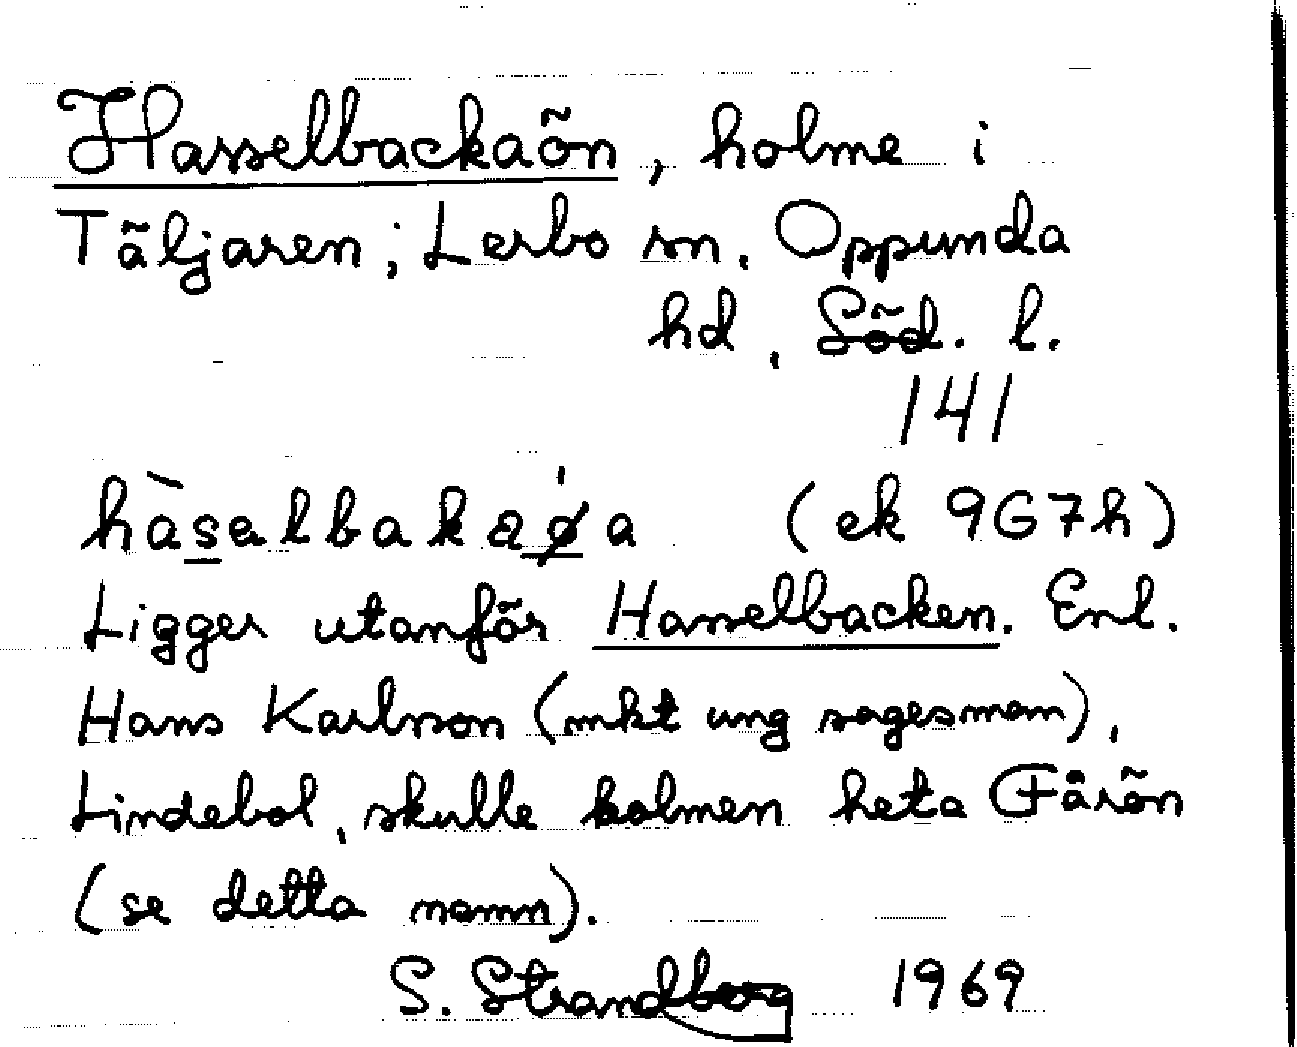 Hasselbackaön, holme i
Täljaren; Lerbo sn. Oppunda
hd, Söd. l.
141
hàsəlbakaǿa (ek 9G7h)
Ligger utanför Hasselbacken. Enl.
Hans Karlsson (mkt ung sagesman),
Lindebol, skulle holmen heta Fårön
(se detta namn).
S. Strandberg 1969